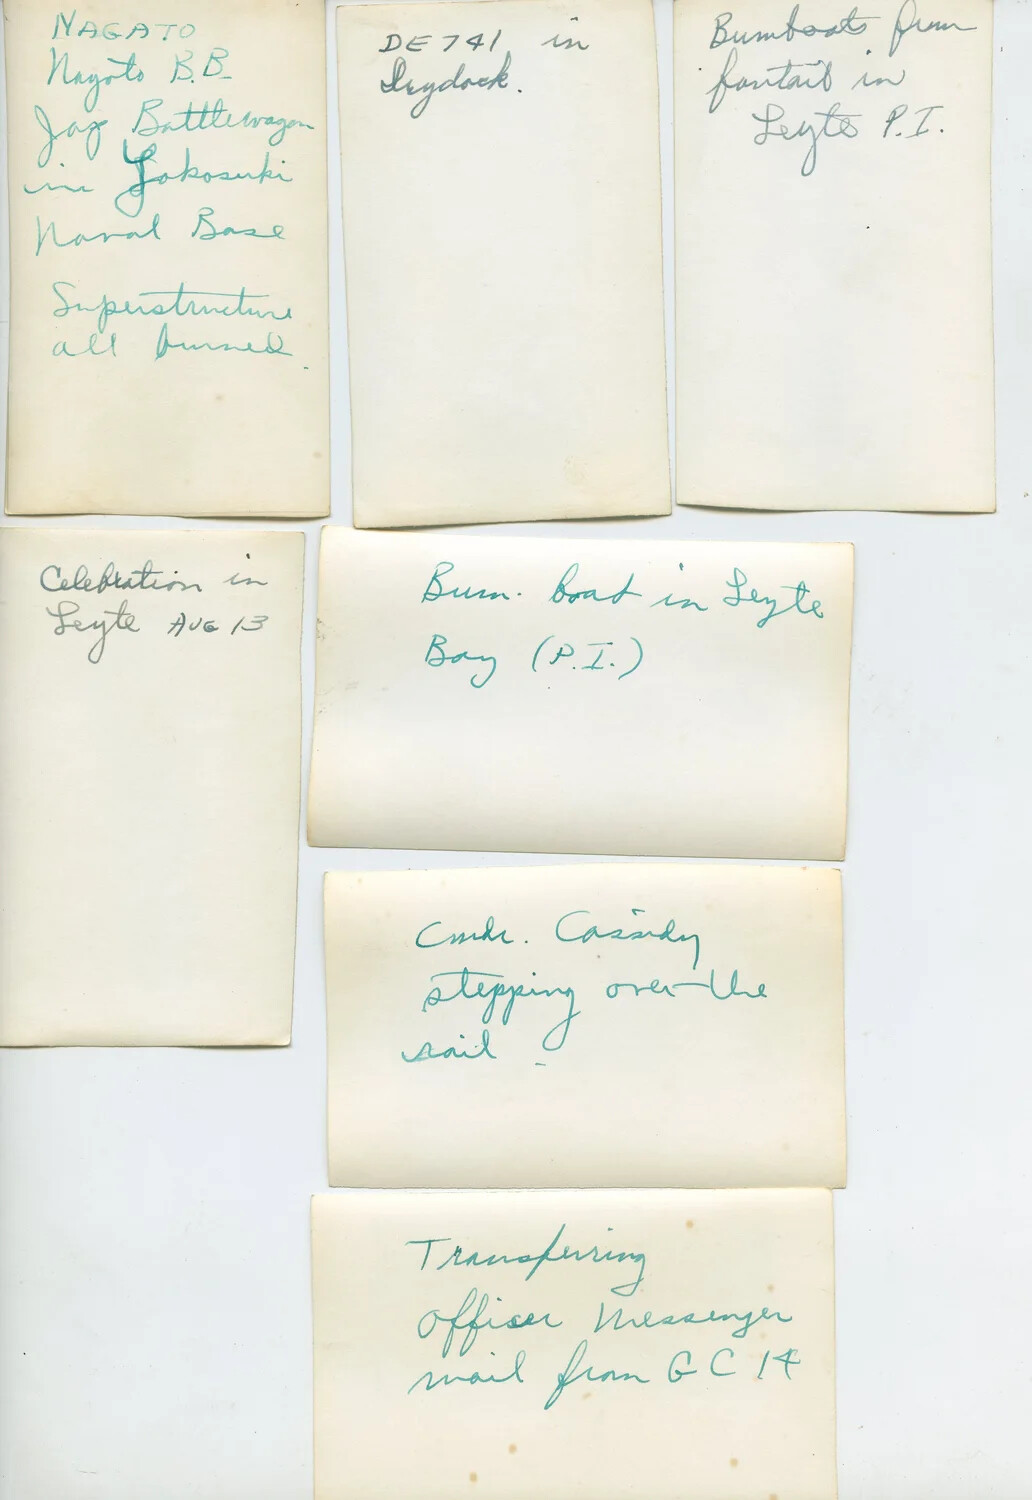 NAGATO
Nagato B.B.
Jap Battlewagon
in Yokosuki
Naval Base
Superstructure
all burned.
DE 741 in
Drydock.
Bumboats from
fantail in
Leyte P.I.
Celebration in
Leyte AUG 13
Bum. boat in Leyte
Bay (P.I.)
Cmdr. Cassidy
stepping over the
rail
Transferring
officer messenger
mail from GC 14